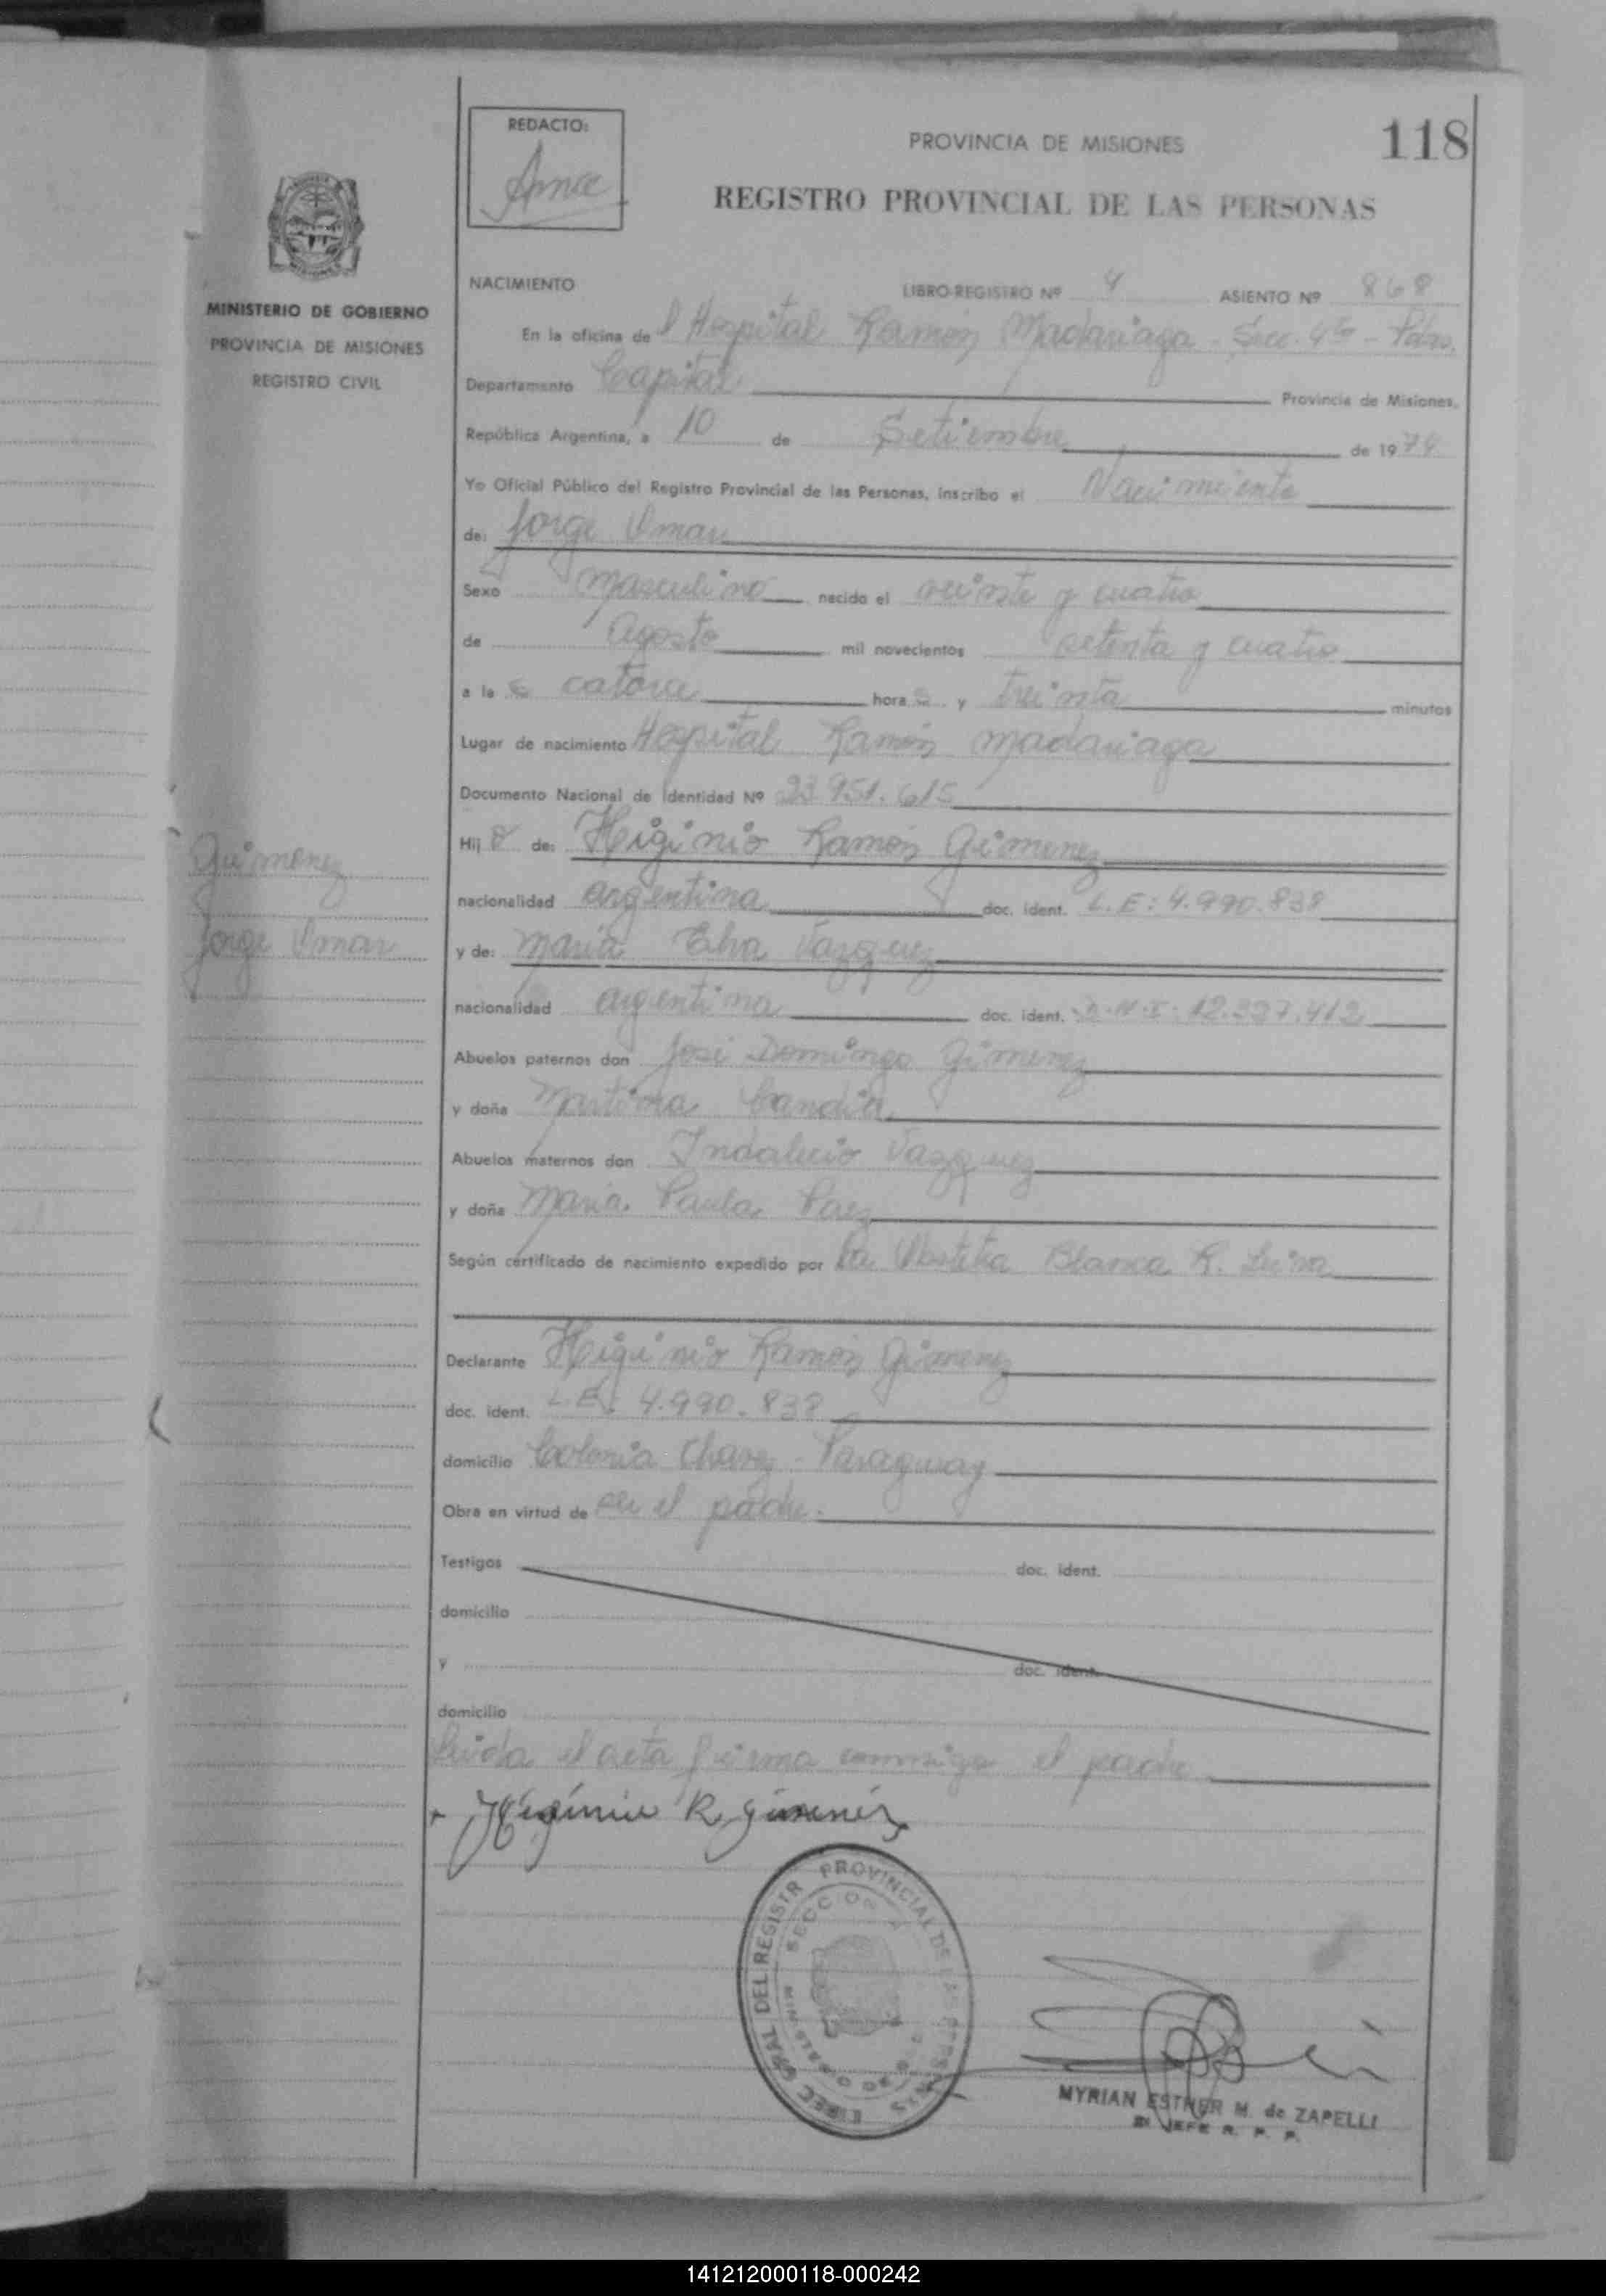 REDACTO:
PROVINCIA DE MISIONES
118
REGISTRO PROVINCIAL DE LAS PERSONAS
MINISTERIO DE GOBIERNO
PROVINCIA DE MISIONES
REGISTRO CIVIL
NACIMIENTO LIBRO-REGISTRO Nº 4 ASIENTO Nº 868
En la oficina de l Hospital Ramón Madariaga - Secc. 4ª - Pdas.
Departamento Capital Provincia de Misiones,
República Argentina, a 10 de Setiembre de 1974
Yo Oficial Público del Registro Provincial de las Personas, inscribo el Nacimiento
de: Jorge Omar
Sexo masculino nacido el veinte y cuatro
de Agosto mil novecientos setenta y cuatro
a la s catorce hora s y treinta minutos
Lugar de nacimiento Hospital Ramón Madariaga
Documento Nacional de Identidad Nº 23.951.615
Hij o de: Higinio Ramón Gimenez
nacionalidad argentina doc. ident. L.E: 4.990.838
Gimenez
Jorge Omar
y de: Maria Elva Vazquez
nacionalidad argentina doc. ident. D.N.I: 12.327.412
Abuelos paternos don José Domingo Gimenez
y doña Martina Candia
Abuelos maternos don Indalecio Vazquez
y doña Maria Paula Paez
Según certificado de nacimiento expedido por la Obstetra Blanca R.
Declarante Higinio Ramón Gimenez
doc. ident. L.E: 4.990.838
domicilio Colonia Chavez - Paraguay
Obra en virtud de ser el padre.
Testigos doc. ident.
domicilio
y doc. ident.
domicilio
Leida el acta firma conmigo el padre
Higinio R Gimenez
DIREC GRAL DEL REGISTR PROVINCIAL DE LAS PERSONAS
SECCION
MYRIAN ESTHER M. de ZAPELLI
JEFE R. P. P.
141212000118-000242